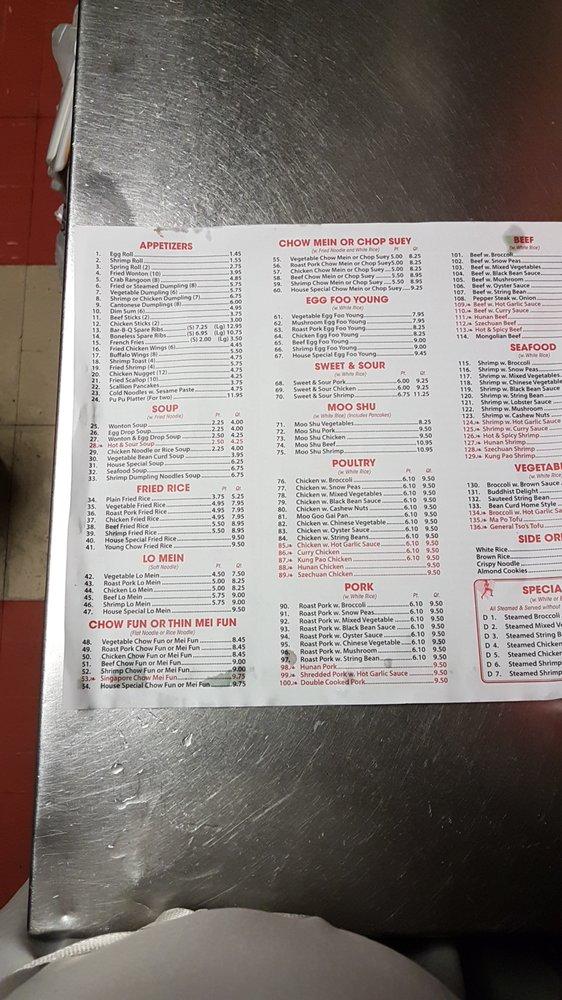 APPETIZERS
1. Egg Roll 1.45
2. Shrimp Roll 1.55
3. Spring Roll (2) 2.75
4. Fried Wonton (10) 3.95
5. Crab Rangoon (8) 4.85
6. Fried or Steamed Dumpling (8) 5.75
7. Vegetable Dumpling (6) 5.75
8. Shrimp or Chicken Dumpling (7) 6.75
9. Cantonese Dumplings (8) 6.00
10. Dim Sum (6) 4.95
11. Beef Sticks (2) 3.75
12. Chicken Sticks (2) 3.00
13. Bar-B-Q Spare Ribs (S) 7.25 (Lg) 12.95
14. Boneless Spare Ribs (S) 6.95 (Lg) 10.75
15. French Fries (S) 2.00 (Lg) 3.50
16. Fried Chicken Wings (6) 4.45
17. Buffalo Wings (8) 5.50
18. Shrimp Toast (4)
19. Fried Shrimp (4)
20. Chicken Nugget (12) 4.75
21. Fried Scallop (10) 4.25
22. Scallion Pancakes 3.75
23. Cold Noodles w. Sesame Paste 4.75
24. Pu Pu Platter (For two) 11.95
SOUP
(w. Fried Noodle) Pt. Qt.
25. Wonton Soup 2.25 4.00
26. Egg Drop Soup 2.25 4.00
27. Wonton & Egg Drop Soup 2.50 4.25
28. Hot & Sour Soup 2.50 4.25
29. Chicken Noodle or Rice Soup 2.25 4.00
30. Vegetable Bean Curd Soup 3.95
31. House Special Soup 6.25
32. Seafood Soup 6.75
33. Shrimp Dumpling Noodles Soup 6.75
FRIED RICE Pt. Qt.
34. Plain Fried Rice 3.75 5.25
35. Vegetable Fried Rice 4.95 7.95
36. Roast Pork Fried Rice 4.95 7.95
37. Chicken Fried Rice 4.95 7.95
38. Beef Fried Rice 5.50 8.95
39. Shrimp Fried Rice 5.50 8.95
40. House Special Fried Rice 9.50
41. Young Chow Fried Rice 9.50
LO MEIN
(Soft Noodle) Pt. Qt.
42. Vegetable Lo Mein 4.50 7.50
43. Roast Pork Lo Mein 5.00 8.25
44. Chicken Lo Mein 5.00 8.25
45. Beef Lo Mein 5.75 9.00
46. Shrimp Lo Mein 5.75 9.00
47. House Special Lo Mein 9.50
CHOW FUN OR THIN MEI FUN
(Flat Noodle or Rice Noodle)
48. Vegetable Chow Fun or Mei Fun 8.45
49. Roast Pork Chow Fun or Mei Fun 8.45
50. Chicken Chow Fun or Mei Fun 8.45
51. Beef Chow Fun or Mei Fun 9.00
52. Shrimp Chow Fun or Mei Fun 9.00
53. Singapore Chow Mei Fun 9.75
54. House Special Chow Fun or Mei Fun 9.75
CHOW MEIN OR CHOP SUEY
(w. Fried Noodle and White Rice) Pt. Qt.
55. Vegetable Chow Mein or Chop Suey 5.00 8.25
56. Roast Pork Chow Mein or Chop Suey 5.00 8.25
57. Chicken Chow Mein or Chop Suey 5.00 8.25
58. Beef Chow Mein or Chop Suey 5.50 8.95
59. Shrimp Chow Mein or Chop Suey 5.50 8.95
60. House Special Chow Mein or Chop Suey 9.25
EGG FOO YOUNG
(w. White Rice)
61. Vegetable Egg Foo Young 7.95
62. Mushroom Egg Foo Young 7.95
63. Roast Pork Egg Foo Young 8.25
64. Chicken Egg Foo Young 8.25
65. Beef Egg Foo Young 9.00
66. Shrimp Egg Foo Young 9.00
67. House Special Egg Foo Young 9.45
SWEET & SOUR
(w. White Rice) Pt. Qt.
68. Sweet & Sour Pork 6.00 9.25
69. Sweet & Sour Chicken 6.00 9.25
70. Sweet & Sour Shrimp 6.75 11.25
MOO SHU
(w. White Rice) (Includes Pancakes)
71. Moo Shu Vegetables 8.25
72. Moo Shu Pork 9.50
73. Moo Shu Chicken 9.50
74. Moo Shu Beef 10.95
75. Moo Shu Shrimp 10.95
POULTRY
(w. White Rice) Pt. Qt.
76. Chicken w. Broccoli 6.10 9.50
77. Chicken w. Snow Peas 6.10 9.50
78. Chicken w. Mixed Vegetables 6.10 9.50
79. Chicken w. Black Bean Sauce 6.10 9.50
80. Chicken w. Cashew Nuts 6.10 9.50
81. Moo Goo Gai Pan 6.10 9.50
82. Chicken w. Chinese Vegetable 6.10 9.50
83. Chicken w. Oyster Sauce 6.10 9.50
84. Chicken w. String Beans 6.10 9.50
85. Chicken w. Hot Garlic Sauce 6.10 9.50
86. Curry Chicken 6.10 9.50
87. Kung Pao Chicken 6.10 9.50
88. Hunan Chicken 9.50
89. Szechuan Chicken 9.50
PORK
(w. White Rice) Pt. Qt.
90. Roast Pork w. Broccoli 6.10 9.50
91. Roast Pork w. Snow Peas 6.10 9.50
92. Roast Pork w. Mixed Vegetable 6.10 9.50
93. Roast Pork w. Black Bean Sauce 6.10 9.50
94. Roast Pork w. Oyster Sauce 6.10 9.50
95. Roast Pork w. Chinese Vegetable 6.10 9.50
96. Roast Pork w. Mushroom 6.10 9.50
97. Roast Pork w. String Bean 6.10 9.50
98. Hunan Pork 9.50
99. Shredded Pork w. Hot Garlic Sauce 9.50
100. Double Cooked Pork 9.50
BEEF
(w. White Rice)
101. Beef w. Broccoli
102. Beef w. Snow Peas
103. Beef w. Mixed Vegetables
104. Beef w. Black Bean Sauce
105. Beef w. Mushroom
106. Beef w. Oyster Sauce
107. Beef w. String Bean
108. Pepper Steak w. Onion
109. Beef w. Hot Garlic Sauce
110. Beef w. Curry Sauce
111. Hunan Beef
112. Szechuan Beef
113. Hot & Spicy Beef
114. Mongolian Beef
SEAFOOD
(w. White Rice)
115. Shrimp w. Broccoli
116. Shrimp w. Snow Peas
117. Shrimp w. Mixed Vegetables
118. Shrimp w. Chinese Vegetable
119. Shrimp w. Black Bean Sauce
120. Shrimp w. String Bean
121. Shrimp w. Lobster Sauce
122. Shrimp w. Mushroom
123. Shrimp w. Cashew Nuts
124. Shrimp w. Hot Garlic Sauce
125. Shrimp w. Curry Sauce
126. Hot & Spicy Shrimp
127. Hunan Shrimp
128. Szechuan Shrimp
129. Kung Pao Shrimp
VEGETAB
(w. White Rice
130. Broccoli w. Brown Sauce
131. Buddhist Delight
132. Sauteed String Bean
133. Bean Curd Home Style
134. Broccoli w. Hot Garlic Sa
135. Ma Po Tofu
136. General Tso's Tofu
SIDE OR
White Rice
Brown Rice
Crispy Noodle
Almond Cookies
SPECIA
(w. White or
All Steamed & Served without
D 1. Steamed Broccoli
D 2. Steamed Mixed Ve
D 3. Steamed String B
D 4. Steamed Chicken
D 5. Steamed Chicken
D 6. Steamed Shrimp
D 7. Steamed Shrimp